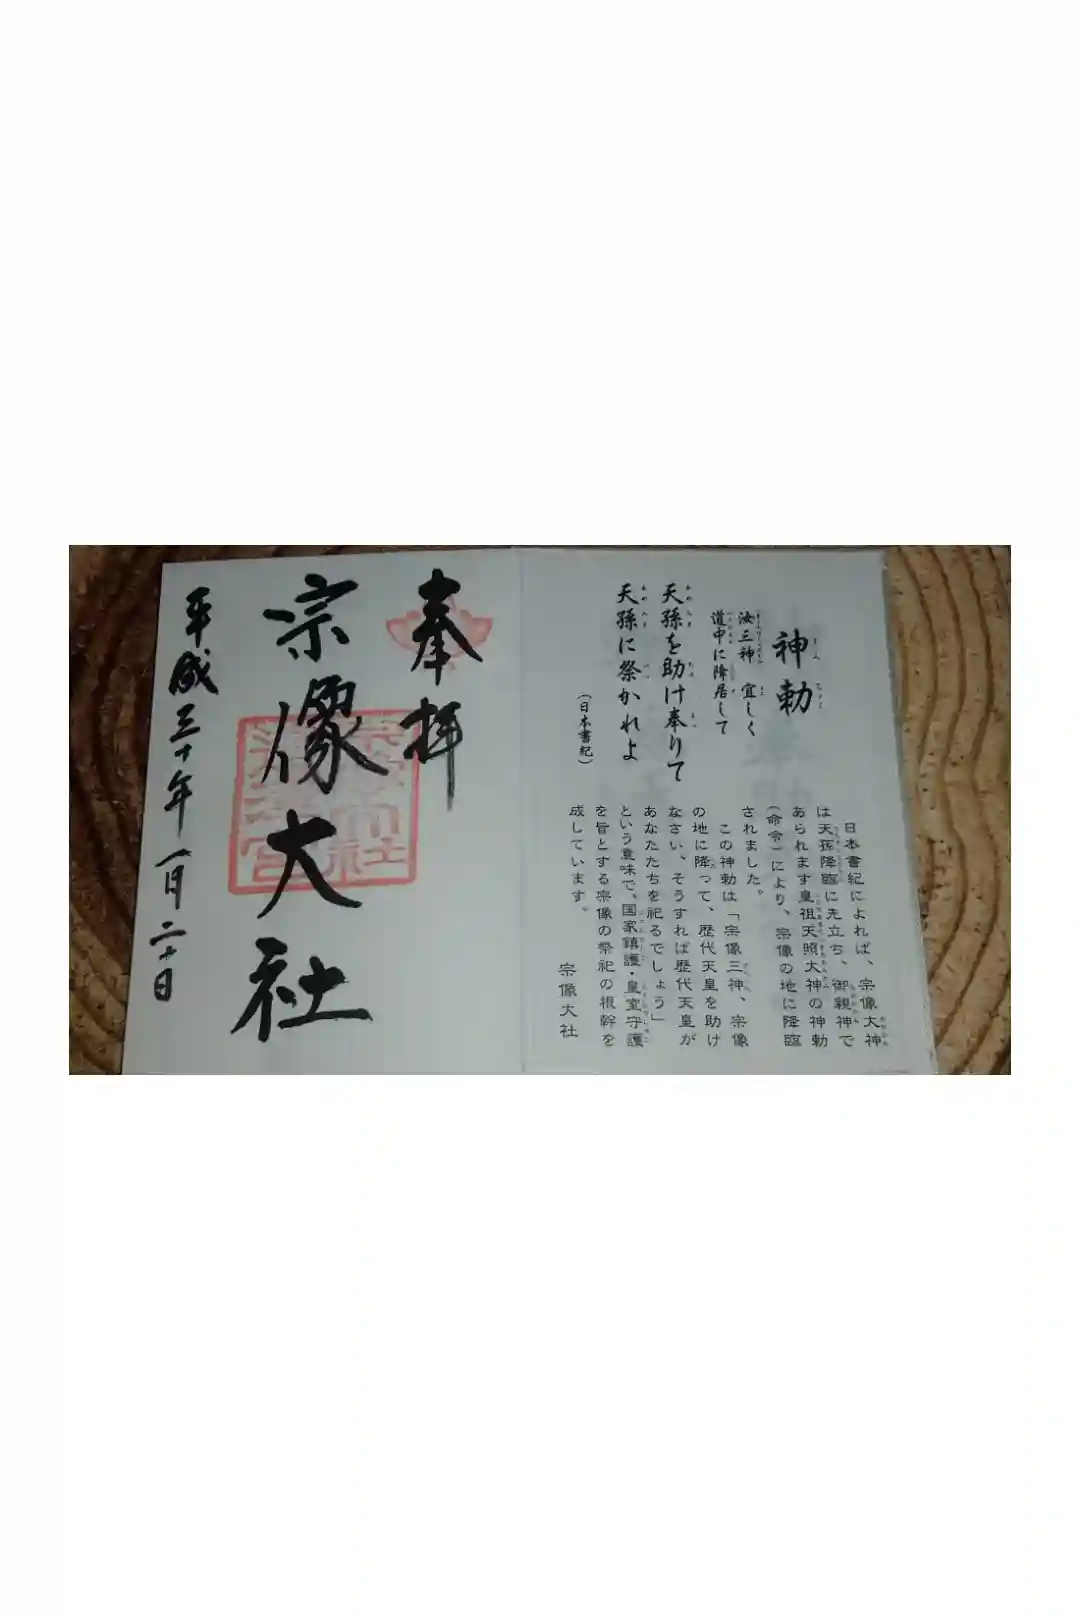 神勅
汝三神 宜しく
道中に降居して
天孫を助け奉りて
天孫に祭かれよ
（日本書紀）
日本書紀によれば、宗像大神
は天孫降臨に先立ち、御親神で
あられます皇祖天照大神の神勅
（命令）により、宗像の地に降臨
されました。
この神勅は「宗像三神、宗像
の地に降って、歴代天皇を助け
なさい、そうすれば歴代天皇が
あなたたちを祀るでしょう」
という意味で、国家鎮護・皇室守護
を旨とする宗像の祭祀の根幹を
成しています。
宗像大社
奉拝
宗像大社
平成三十年一月二十日